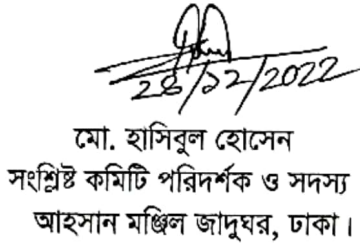 28/12/2022
মো. হাসিবুল হোসেন
সংশ্লিষ্ট কমিটি পরিদর্শক ও সদস্য
আহসান মঞ্জিল জাদুঘর, ঢাকা।